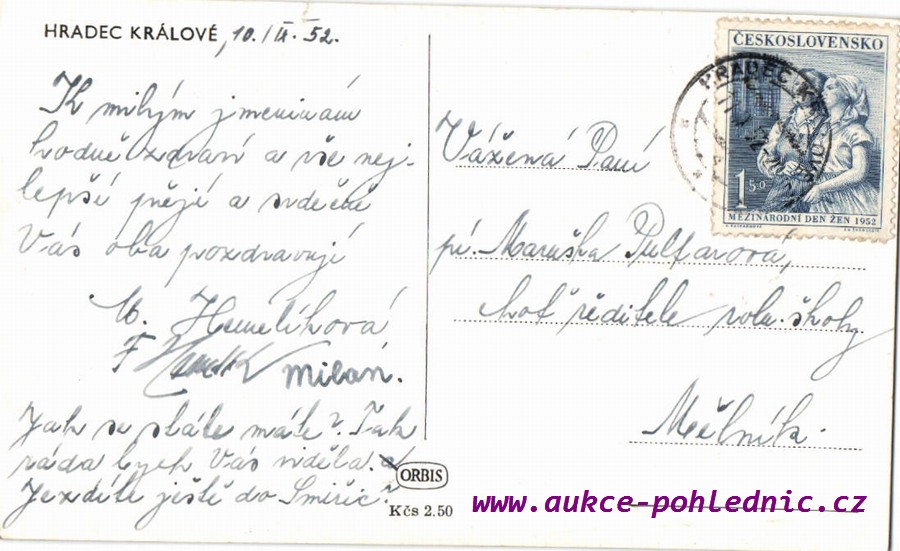 HRADEC KRÁLOVÉ, 10./IX. 52.
K milým jmeninám
hodně zdraví a vše nej-
lepší přejí a srdečně
Vás oba pozdravují
M. Hemelíková
F. Milan.
Jak se stále máte? Tak
ráda bych Vás viděla. a
Jezdíte ještě do Smiřic?
ORBIS
Kčs 2.50
ČESKOSLOVENSKO
HRADEC KRÁLOVÉ
1.50
MEZINÁRODNÍ DEN ŽEN 1952
Vážená Paní
pí. Maruška Pulfarová,
choť ředitele roln. školy
Mělník.
www.aukce-pohlednic.cz